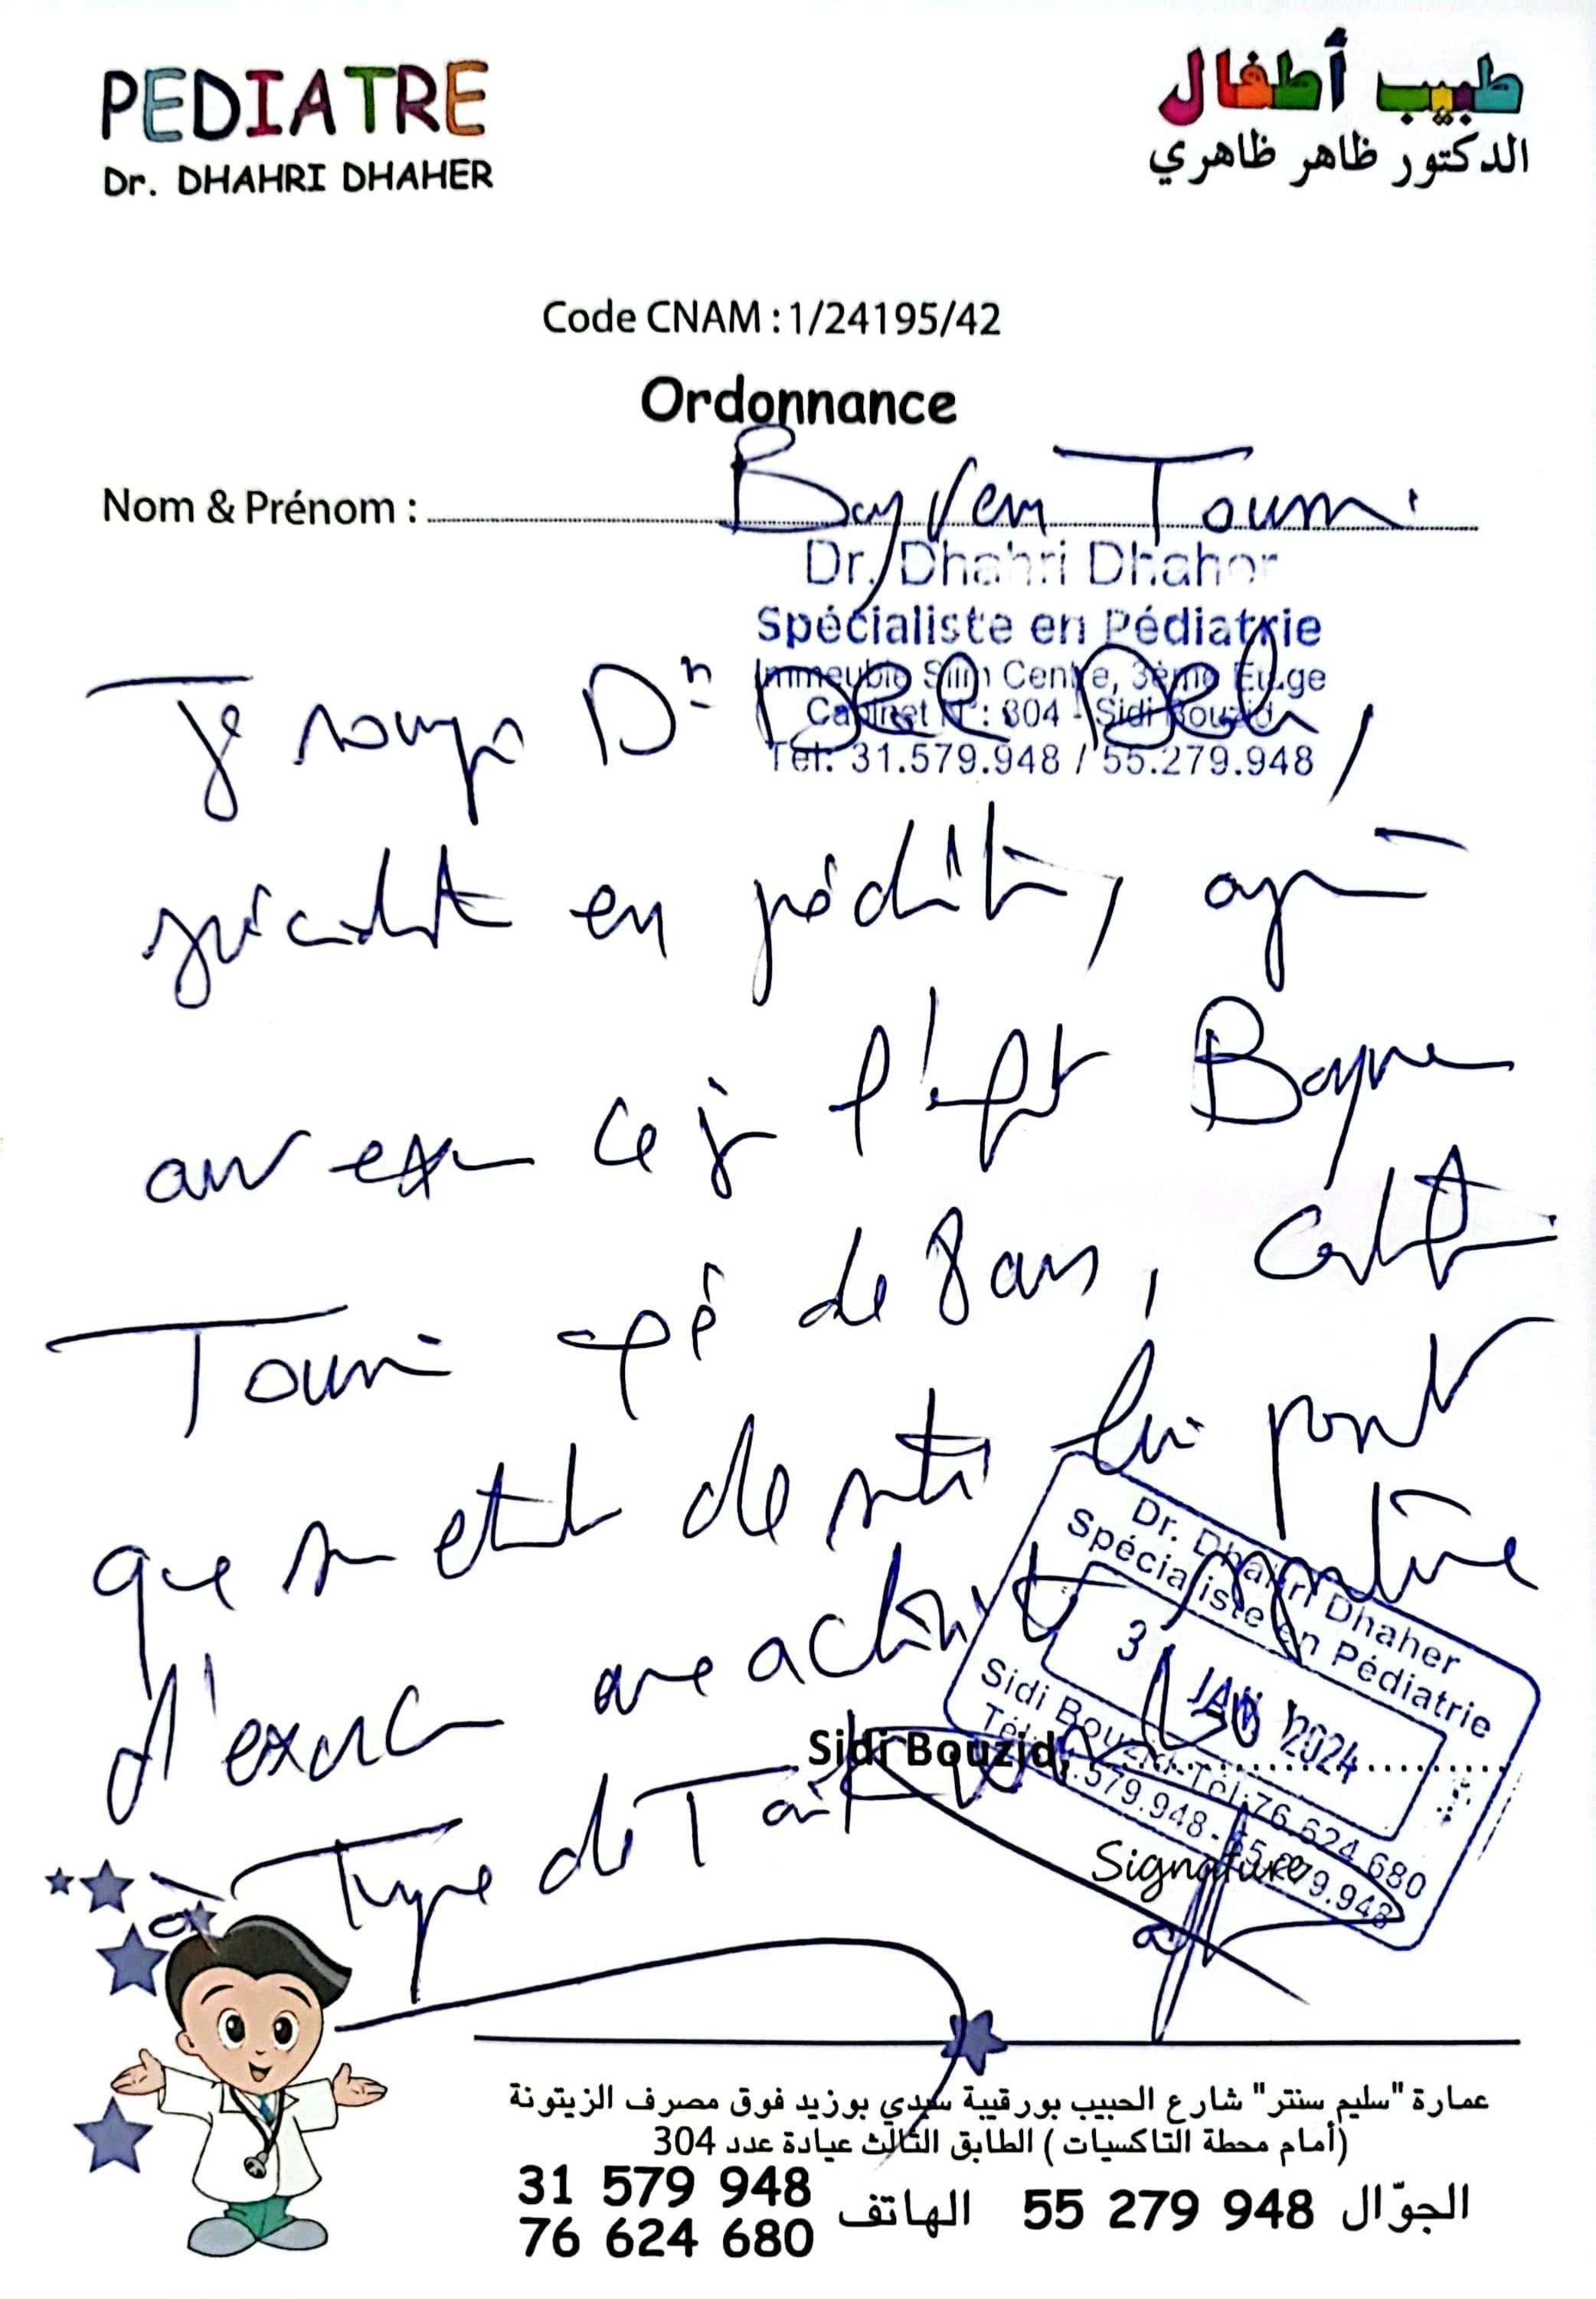 PEDIATRE
Dr. DHAHRI DHAHER
طبيب أطفال
الدكتور ظاهر ظاهري
Code CNAM : 1/24195/42
Ordonnance
Nom & Prénom : Bayrem Toumi
Dr. Dhahri Dhaher
Spécialiste en Pédiatrie
Immeuble Slim Centre, 3ème Etage
Cabinet N° : 304 - Sidi Bouzid
Tél: 31.579.948 / 55.279.948
Je Dr
en pédiatrie,
ce j l'enfant Bayrem
Toumi agé de 8 ans,
que son etat de santé lui permet
d'exercer une activité sportive
Type de
Dr. Dhahri Dhaher
Spécialiste en Pédiatrie
3 JAN 2024
Sidi Bouzid-Tél:76.624.680
Tél: 31.579.948 - 55.279.948
Sidi Bouzid,
Signature
عمارة "سليم سنتر" شارع الحبيب بورقيبة سيدي بوزيد فوق مصرف الزيتونة
(أمام محطة التاكسيات ) الطابق الثالث عيادة عدد 304
الجوّال 55 279 948 الهاتف 31 579 948
76 624 680